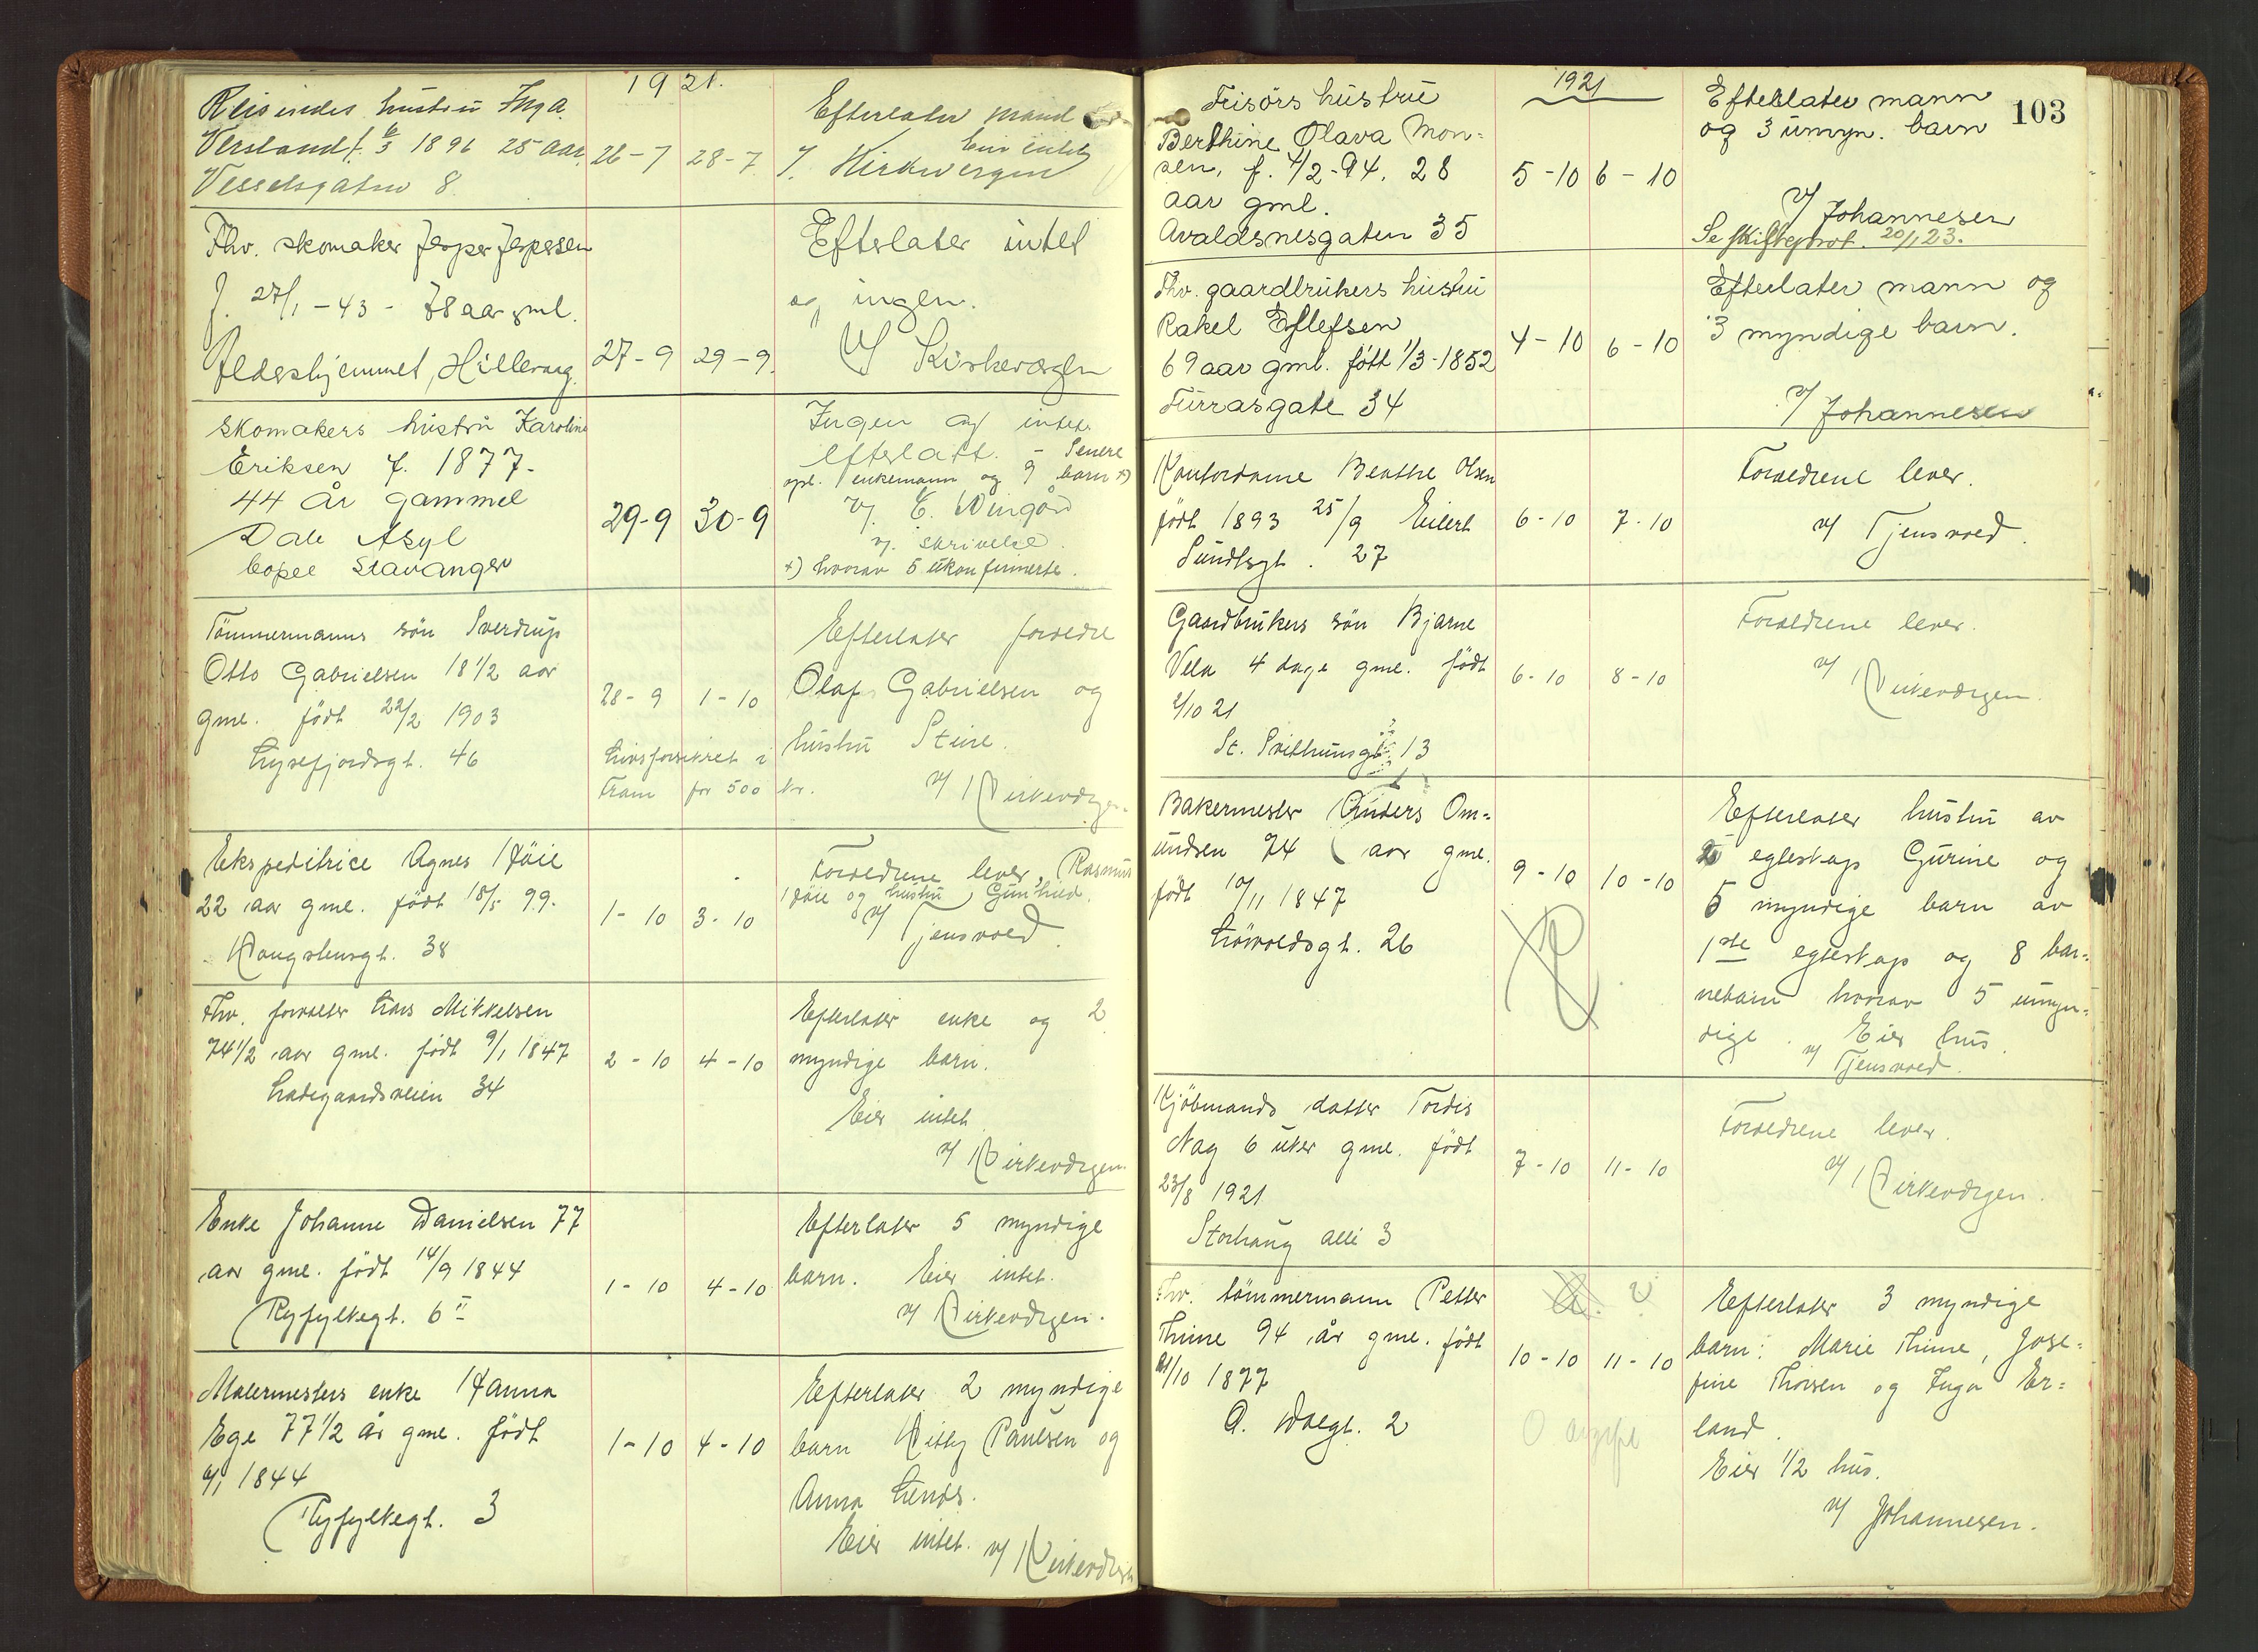 1921.
Reisendes hustru Inga
Versland f. 6/3 1896 25 aar
Vesselsgaten 8
26-7 28-7
Efterlater mand
Eier intet
v/ Kirkevergen
Fhv. skomaker Jesper Jespersen
f. 27/1-43 - 78 aar gml.
Aldershjemmet, Hillevaag.
27-9 29-9.
Efterlater intet
og ingen.
v/ Kirkevergen
Skomakers hustru Karoline
Eriksen f. 1877-
44 år gammel
Dale Asyl
bopel Stavanger
29-9 30-9
Ingen og intet
efterlatt. - Senere
opl. enkemann og 9 barn x)
v/ E. Wingård
v/ skrivelse.
x) hvorav 5 ukonfirmerte.
Tömmermanns sön Sverdrup
Otto Gabrielsen 18 1/2 aar
gml. födt 22/2 1903
Lysefjordsgt. 46
28-9 1-10
Livsforsikret i
Fram for 500 kr.
Efterlater foreldre
Olaf Gabrielsen og
hustru Stine.
v/ Kirkevergen.
Ekspeditrice Agnes Höie
22 aar gml. födt 18/5 99.
Kongstensgt. 38
1-10 3-10
Foreldrene lever, Rasmus
Höie og hustru Gunhild.
v/ Tjensvold.
Fhv. forvalter Lars Mikkelsen
74 1/2 aar gml. födt 9/1 1847
Ladegaardsveien 34
2-10 4-10
Efterlater enke og 2
myndige barn.
Eier intet.
v/ Kirkevergen.
Enke Johanne Danielsen 77
aar gml. födt 14/9 1844
Ryfylkegt. 6 II
1-10 4-10
Efterlater 5 myndige
barn. Eier intet.
v/ Kirkevergen.
Malermesters enke Hanna
Ege 77 1/2 år gml. födt
1844
Ryfylkegt. 3
1-10 4-10
Efterlater 2 myndige
barn Kitty Paulsen og
Anna Lunde.
Eier intet. v/ Kirkevergen
103
1921
Frisörs hustru
Berthine Olava Mon=
sen, f. 4/2-94. 28
aar gml.
Avaldsnesgaten 35
5-10 6-10
Efterlater mann
og 3 umyn. barn
v/ Johannesen
Se skifteprot. 20/1 23.
Fhv. gaardbrukers hustru
Rakel Eflefsen
69 aar gml. född 1/3-1852
Furrasgate 34
4-10 6-10
Efterlater mann og
3 myndige barn.
v/ Johannesen
Kontordame Benthe Olsen
födt 1893 25/9 Eilert
Sundtsgt. 27
6-10 7-10
Foreldrene lever.
v/ Tjensvold.
Gaardbrukers sön Bjarne
Vela 4 dage gml. födt
2/10 21
St. Svithunsgt. 13
6-10 8-10
Foreldrene lever.
v/ Kirkevergen.
Bakermester Anders Om=
undsen 74 aar gml.
födt 10/11 1847
Lövvoldsgt. 26
9-10 10-10
Efterlater hustru av
2 egteskap Gurine og
5 myndige barn av
1ste egteskap og 8 bar-
nebarn hvorav 5 umyn-
dige. Eier hus.
v/ Tjensvold.
Kjöbmands datter Tordis
Nag 6 uker gml. födt
23/8 1921
Storhaug alle 3
7-10 11-10
Foreldrene lever.
v/ Kirkevergen.
Fhv. tömmermann Petter
Thime 94 år gml. födt
21/10 1877
O. Dalgt. 2
10-10 11-10
Efterlater 3 myndige
barn: Marie Thime, Jose-
fine Thorsen og Inga Er=
land.
Eier 1/2 hus.
v/ Johannesen.